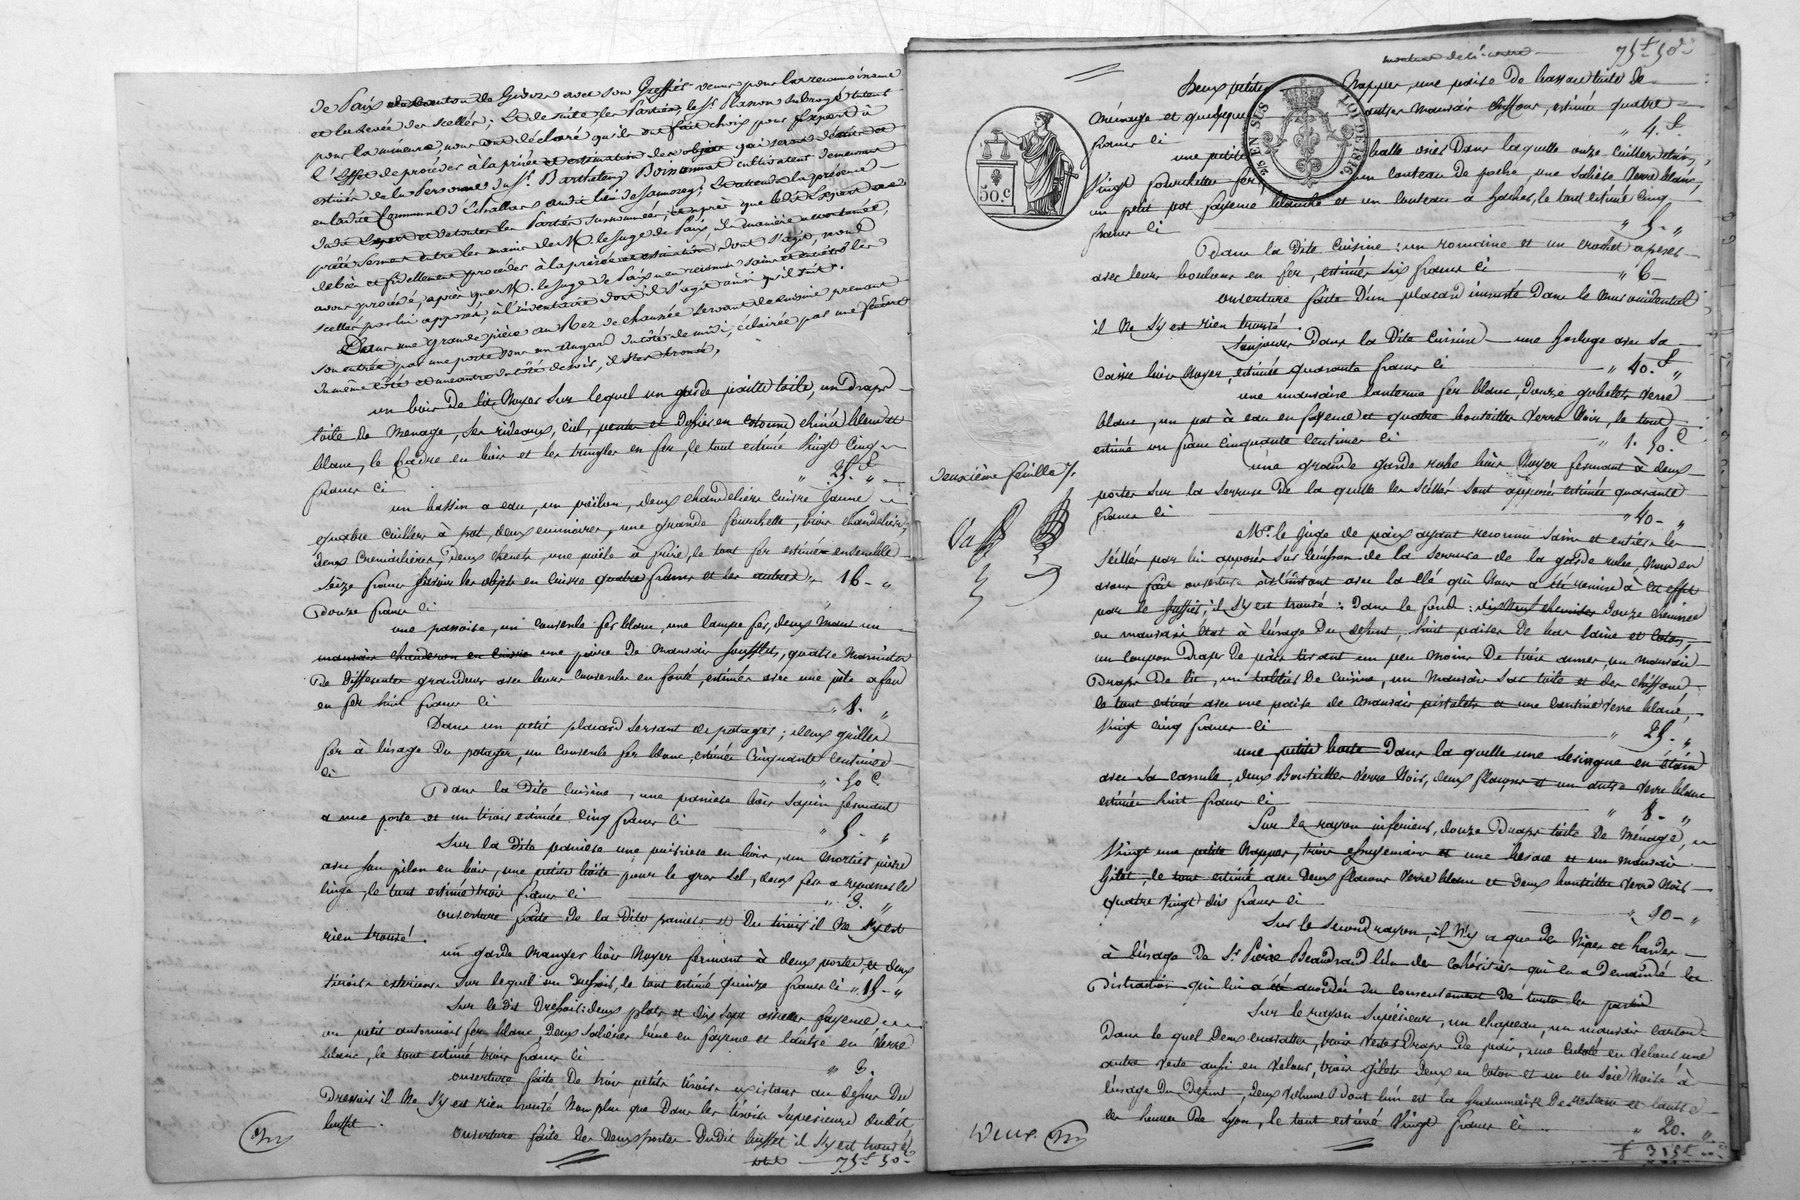 de Paix du Canton de Givors avec son Greffier venu pour la reconnaissance
et la levée des scellés; et de suite les Parties, le Sr. Planon subrogé tuteur
pour la mineure, nous ont déclaré qu'ils ont fait choix pour Expert à
l'effet de procéder à la prisée et estimation des objets qui seront décrits et
de la Personne du Sr. Barthelemy Boironnat cultivateur demeurant
en ladite Commune d'Echallas
prêté serment entre les mains de M. le Juge de Paix, de la manière accoutumée,
de bien et fidellement procéder à la prisée et estimation dont s'agit, nous
avons procédé, après que M. le Juge de Paix a reconnu sains et entiers les
scellés par lui apposés, à l'inventaire dont il s'agit ainsi qu'il suit.
Dans une grande pièce au Rez de chaussée servant de cuisine prenant
son entrée par une porte sous un angard du côté de midi, éclairée par une fenêtre
du même côté et une autre du côté de soir, il s'est trouvé,
un bois de lit Noyer sur lequel un garde paille toile, un Drap
toile de Menage, ses rideaux, ciel, pente et Dossier en cotonne chinée bleu et
blanc, le Cadre en bois et les tringles en fer, le tout estimé Vingt Cinq
francs ci " 25. f "
un bassin a eau, un poëlon, deux chandeliers cuivre jaune
quatre cuillers à pot, deux ecumoires, une grande fourchette, trois chandeliers,
deux Cremaillères, Deux chenets, une poële à frire, le tout fer estimé ensemble
seize francs savoir les objets en cuivre quatre francs et les autres " 16 - "
Douze francs ci
une passoire, un couvercle fer blanc, une lampe fer, deux seaux un
mauvais chauderon en cuivre une paire de mauvais soufflets, quatre Marmites
De differentes grandeurs avec leurs couvercles en fonte, estimés avec une pèle a feu
en fer huit francs ci " 8. "
Dans un petit placard servant de potager; deux grilles
fer à l'usage Du potager, un couvercle fer blanc, estimés Cinquante Centimes
ci " 50 c
Dans la Dite Cuisine, une panière bois Sapin fermant
a une porte et un tiroir estimée cinq francs ci " 5 - "
Sur la Dite panière une puisière en bois, un Mortier pierre
avec son pilon en bois, une petite boëte pour le gros sel, deux fers a repasser le
linge, le tout estimé trois francs ci " 3. "
Ouverture faite de la Dite panière et Du tiroir il Ne s'y est
rien trouvé.
un garde Manger bois Noyer fermant à deux portes, et deux
tiroirs exterieurs Sur lequel un Dressoir, le tout estimé quinze francs ci " 15 - "
Sur le dit Dressoir: deux plats et dix sept assiettes fayence
un petit entonnoir fer blanc, deux salières l'une en fayence et l'autre en Verre
blanc, le tout estimé trois francs ci " 3.
Ouverture faite De trois petits tiroirs existans au dessus Du
Dressoir il Ne s'y est rien trouvé Non plus que Dans les tiroirs Superieurs dudit
buffet.
Ouverture faite Des Deux portes Dudit buffet il s'y est trouvé
total 75 f 50 c
montant de ci-contre 75 f 50 c
Deux petites Nappes, une paire De bas toile de
Ménage et quelques autres mauvais chiffons, estimés quatre
francs ci " 4. f
une petite balle osier Dans laquelle onze Cuillers étain,
Vingt fourchettes fer, un couteau de poche, une salière Verre blanc,
un petit pot fayence blanche et un Couteau à haches, le tout estimé Cinq
francs ci " 5 - "
Dans la Dite Cuisine: une romaine et un crochet a peser
avec leurs boulons en fer, estimés six francs ci " 6 -
Ouverture faite D'un placard incrusté Dans le Mur occidental
il Ne s'y est rien trouvé.
Toujours Dans la Dite Cuisine une horloge avec sa
Caisse bois Noyer, estimée quarante francs ci " 40. f "
une mauvaise lanterne fer blanc, Douze gobelets Verre
blanc, un pot à eau en fayence et quatre bouteilles Verre Noir, le tout
estimé un franc cinquante Centimes ci " 1. 50. c
une grande garde robe bois Noyer fermant à deux
portes sur la serrure De la quelle les scellés sont apposés estimée quarante
francs ci " 40 - "
Mr. le Juge de paix ayant reconnu sain et entier le
scéllé par lui apposé sur l'entrée de la serrure de la garde robe, Nous en
avons fait ouverture à l'instant avec la clé qui Nous a été remise à cet effet
par le greffier; il s'y est trouvé: Dans le fond: Douze chemises
en mauvais état à l'usage Du defunt, huit paires De bas laine et coton,
un coupon Drap De pais tirant un peu moins De trois aunes, un mauvais
Drap De lit, un tablier De cuisine, un Mauvais Sac toile et des chiffons,
le tout estimé avec une paire De mauvais pistolets et une cantine Verre blanc,
Vingt cinq francs ci " 25. "
une petite boete Dans la quelle une Seringue en étain
avec sa canule, deux Bouteilles Verre Noir, deux flacons et un autre Verre blanc
estimée huit francs ci " 8 - "
Sur le rayon inferieur, douze Draps toile De Ménage,
Vingt une petite Nappes, trois essuyemains et une besace et un mauvais
Gilet, le tout estimé avec Deux flacons Verre blanc et deux bouteilles Verre Noir
quatre Vingt dix francs ci " 90 - "
Sur le second rayon, il N'y a que des Nipes et hardes
à l'usage De Sr. Pierre Beaudrand l'un des cohéritiers qui en a Demandé la
Distraction qui lui a été accordée du consentement De toutes les parties
Sur le rayon supérieur, un chapeau, un mauvais carton
Dans le quel Deux cravattes, trois Vestes Drap De pais, une Culotte en Velours une
autre Veste aussi en Velours, trois gilets deux en coton et un en Soie Noire à
l'usage Du Defunt, Deux Volumes Dont l'un est la grammaire De et l'autre
les heures De Lyon, le tout estimé Vingt francs ci " 20. "
f 315 f
deuxième feuille
deux
50 c
25 EN SUS
LOI DE 1816.